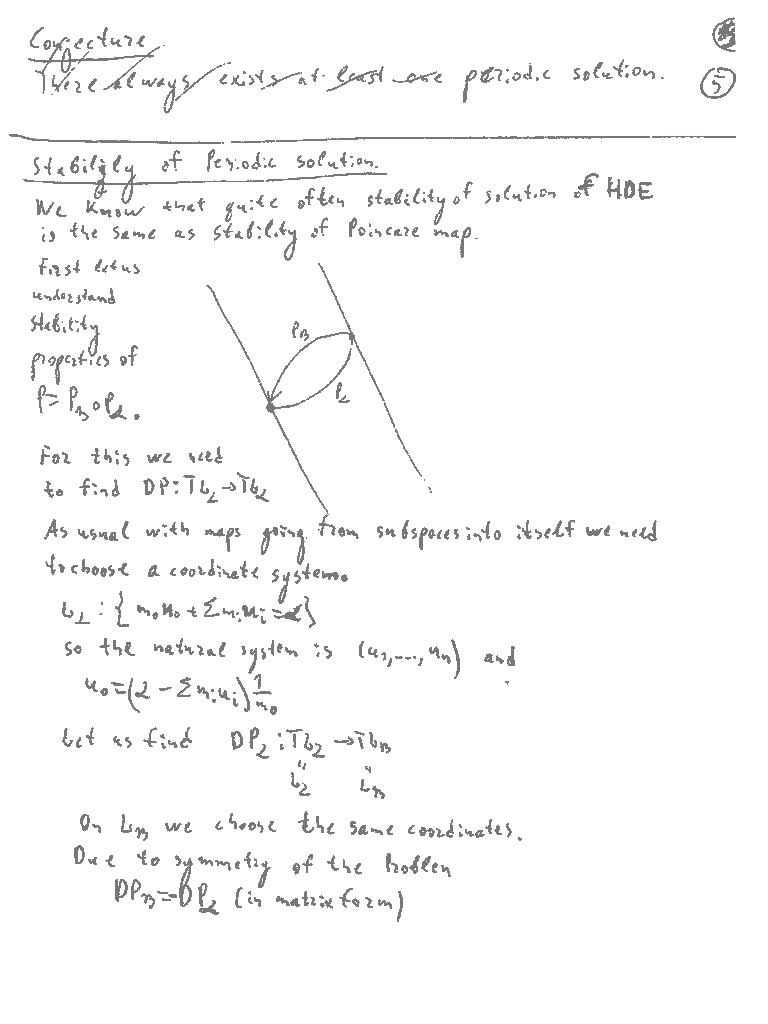 Conjecture
There always exists at least one periodic solution.
5
Stability of Periodic solution.
We know that quite often stability of solution of HDE
is the same as stability of Poincare map.
First let us
understand
stability
properties of
P = P_β ∘ P_α.
P_β
P_α
For this we need
to find DP: TL_α → TL_α
As usual with maps going from subspaces into itself we need
to choose a coordinate system.
L_α : { m₀u₀ + Σ mᵢuᵢ = α }
so the natural system is (u₁,...,uₙ) and
u₀ = (α - Σ mᵢuᵢ) 1/m₀
Let us find DP_α : TL_α → TL_β
" "
L_α L_β
On L_β we choose the same coordinates.
Due to symmetry of the Problem
DP_β = -DP_α (in matrix form)